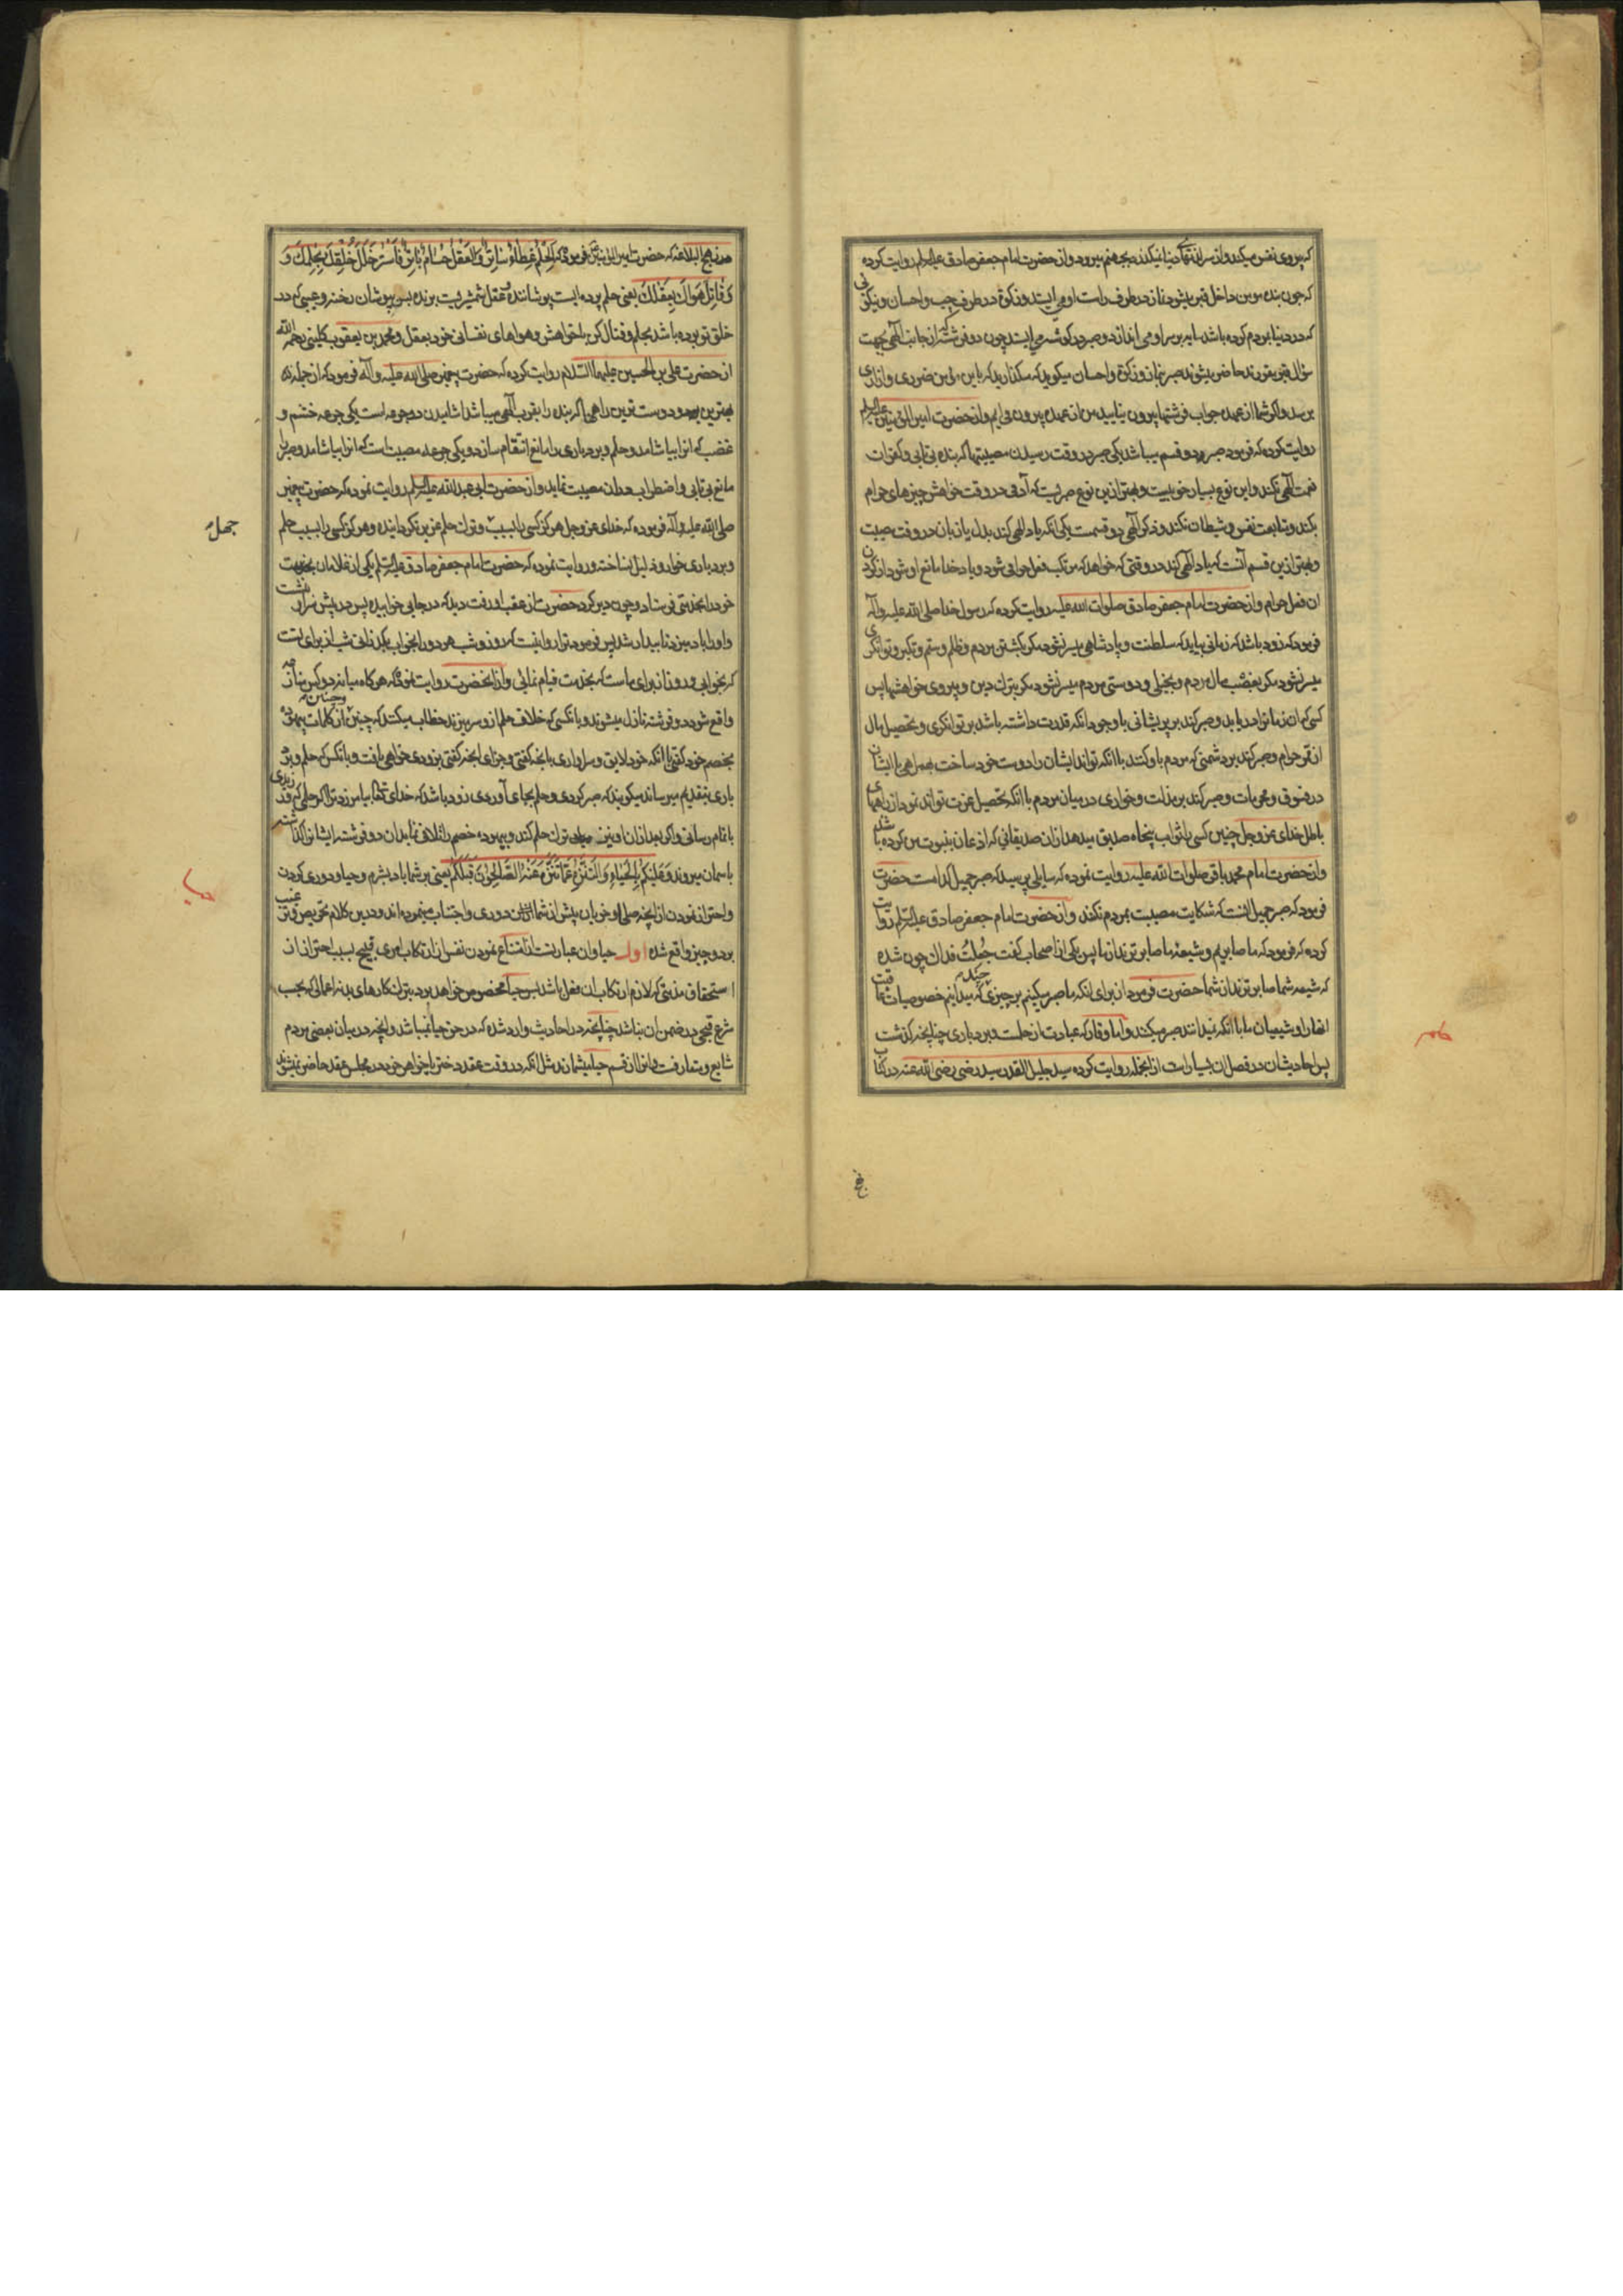 که پیروی نفس میکند و از سر لذتهای دنیا نمیگذرد بجهنم میرود و از حضرت امام جعفر صادق علیه السلام روایت کرده
که چون بنده مومن داخل قبر میشود نماز در طرف راست او می ایستد و زکوة در طرف چپ و احسان و نیکوئی
که در دنیا بمردم کرده باشد سایه بر سر او می اندازد و صبر در گوشه می ایستد چون دو فرشته که از جانب الهی بجهت
سؤال قبر مقررند حاضر میشوند صبر بنماز و زکوة و احسان میگوید که مگذارید که باین مؤمن ضرری و آزاری
برسد و اگر شما از عهده جواب فرشتها بیرون نیایید من از عهده بیرون می ایم و از حضرت امیر المؤمنین علیه السلام
روایت کرده که فرمود صبر بر دو قسم میباشد یکی صبر در وقت رسیدن مصیبتها که بنده بی تابی و کفران
نعمت الهی نکند و این نوع بسیار خوبیست و بهتر ازین نوع صبریست که آدمی در وقت خواهش چیزهای حرام
بکند و متابعت نفس و شیطان نکند و ذکر الهی دو قسمست یکی انکه یاد الهی کند بدل یا زبان در وقت مصیبت
و بهتر ازین قسم آنست که یاد الهی کند در وقتی که خواهد که مرتکب فعل حرامی شود و یاد خدا مانع او شود از کردن
ان فعل حرام و از حضرت امام جعفر صادق صلوات الله علیه روایت کرده که رسول خدا صلی الله علیه و آله
فرمود که زود باشد که زمانی بیاید که سلطنت و پادشاهی میسر نشود مگر بکشتن مردم و ظلم و ستم و تکبر و توانگری
میسر نشود مگر بغصب مال مردم و بخیلی و دوستی مردم میسر نشود مگر بترک دین و پیروی خواهشها پس
کسی که ان زمانرا دریابد و صبر کند بر پریشانی با وجود انکه قدرت داشته باشد بر توانگری و تحصیل مال
از ممر حرام و صبر کند بر دشمنی که مردم با او کنند با انکه تواند ایشان را دوست خود ساخت بهمراهی با ایشان
در فسوق و محرمات و صبر کند بر مذلت و خواری در میان مردم با انکه تحصیل عزت تواند نمود از راههای
باطل خدای عز و جل چنین کسی را ثواب پنجاه صدیق میدهد از ان صدیقانی که اذعان بنبوت من کرده باشند
و از حضرت امام محمد باقر صلوات الله علیه روایت نموده که سایلی پرسید که صبر جمیل کدامست حضرت
فرمود که صبر جمیل انست که شکایت مصیبت بمردم نکند و از حضرت امام جعفر صادق علیه السلام روایت
کرده که فرمود که ما صابریم و شیعهٔ ما صابرترند از ما پس یکی از اصحاب گفت جعلت فداک چون شده
که شیعه شما صابرترند از شما حضرت فرمود از برای انکه ما صبر میکنیم بر چیزی که میدانیم خصوصیات عاقبت
انها را و شیعیان ما با انکه نمیدانند صبر میکنند و اما وقار که عبارت از حلمست و بردباری چنانچه گذشت
پس احادیث ان در فصل ان بسیار است از انجمله روایت کرده سید جلیل القدر سید رضی رضی الله عنه در کتاب
حلم
نهج البلاغه که حضرت امیر المؤمنین فرموده که الحلم غطاء ساتر و العقل حسام باتر فاستر خلل خلقک بحلمک و
و قاتل هواک بعقلک یعنی حلم پرده ایست پوشاننده و عقل شمشیریست برنده پس بپوشان رخنه و عیبی که در
خلق تو بوده باشد بحلم و قتال کن با خواهش و هواهای نفسانی خود بعقل و محمد بن یعقوب کلینی رحمه الله
از حضرت علی بن الحسین علیهما السلام روایت کرده که حضرت پیغمبر صلی الله علیه و آله فرمود که از جمله
بهترین و دوست ترین راهی که بنده را بقرب الهی میباشد اشامیدن دو جرعه است یکی جرعه خشم و
غضب که انرا بیاشامد و حلم و بردباری را مانع انتقام سازد و یکی جرعه مصیبت است که انرا بیاشامد و صبر را
مانع بی تابی و اضطراب در ان مصیبت نماید و از حضرت ابی عبد الله علیه السلام روایت نموده که حضرت پیغمبر
صلی الله علیه و آله فرموده که خدای عز و جل هرگز کسی را بسبب جهل عزیز نگردانیده و هرگز کسی را بسبب حلم
جهل
و بردباری خوار و ذلیل نساخته و روایت نموده که حضرت امام جعفر صادق علیه السلام یکی از غلامان
خود را بخدمتی فرستاد و چون دیر کرد حضرت از عقب او رفت دید که در جایی خوابیده پس در پیش سر او نشست
و او را باد میزد تا بیدار شد پس فرمود ترا روا نیست که روز و شب هر دو را بخواب بگذرانی شب از برای تست
که بخوابی و روز از برای ماست که بخدمت قیام نمائی و از انحضرت روایت نموده که هرگاه میانه دو کس منازعه
واقع شود دو فرشته نازل میشوند و بانکسی که خلاف حلم از و سر میزند خطاب میکنند که چنین و چنین از کلمات بیهوده
بخصم خود گفتی با انکه خود لایق و سزاواری بانچه گفتی و جزای انچه گفتی بزودی خواهی یافت و بانکس که حلم و برد
باری بتقدیم میرساند میگویند که صبر کردی و حلم بجای آوردی زود باشد که خدای تعالی بیامرزد ترا اگر حلمی که ورزیدی
باتمام رسانی و اگر بعد از ان او نیز ترک حلم کند و بیهوده خصم را تلافی نماید ان دو فرشته ایشانرا گذاشته
باسمان میروند و علیکم بالحیاء و التنزه عما تنزه عنه الصالحون قبلکم یعنی بر شما باد بشرم و حیا و دوری کردن
و احتراز نمودن از انچه صلحا و خوبان پیش از شما ازان دوری و اجتناب مینموده اند و درین کلام تحریص و ترغیب
حیا
بر دو چیز واقع شده اول حیا و ان عبارتست از امتناع نمودن نفس از ارتکاب امری قبیح بسبب احتراز از
استحقاق مذمتی که لازم ارتکاب ان فعل باشد پس حیا مخصوص خواهد بود بترک کارهای بد نه اعمالی که بحسب
شرع قبحی در ضمن ان نباشد چنانچه در احادیث وارد شده که در حق حیا نمیباشد و انچه در میان بعضی مردم
شایع و متعارفست و انرا از قسم حیا میشمارند مثل انکه در وقت عقد دختر یا خواهر خود در مجلس عقد حاضر نمیشوند